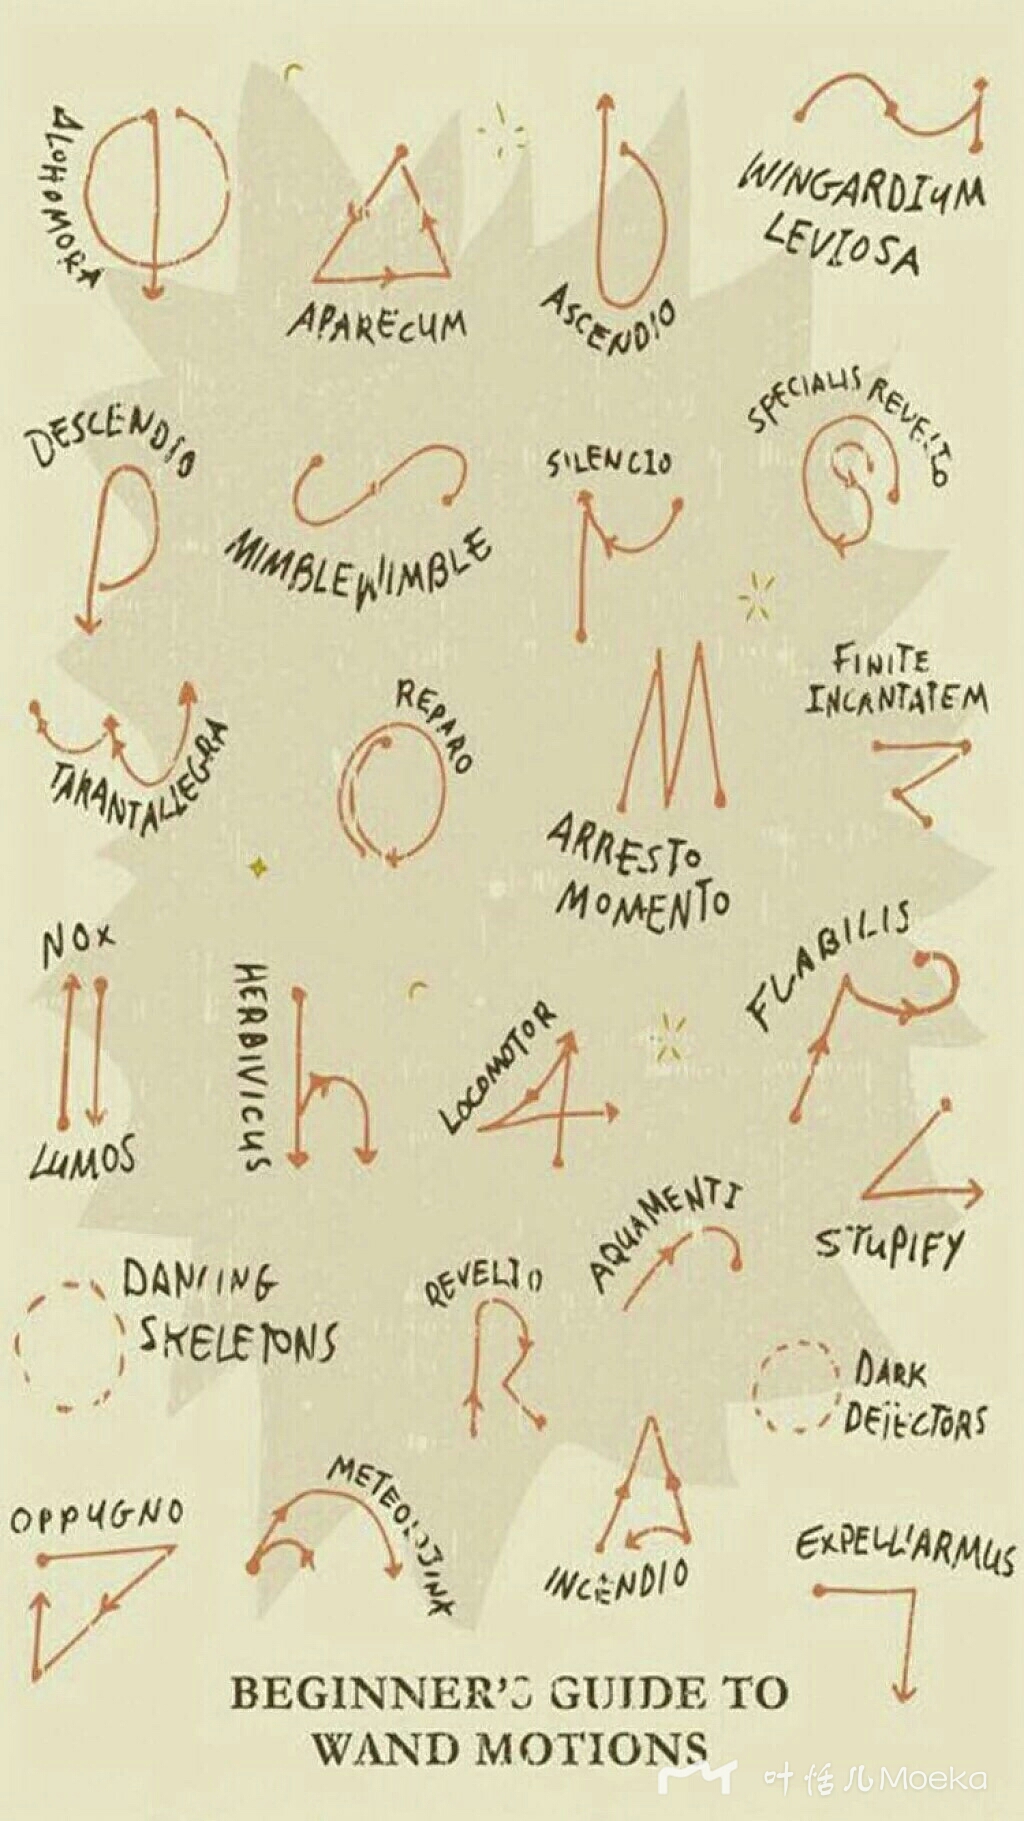 ALOHOMORA
APARECUM
ASCENDIO
WINGARDIUM
LEVIOSA
DESCENDIO
MIMBLEWIMBLE
SILENCIO
SPECIALIS REVELIO
TARANTALLEGRA
REPARO
ARRESTO
MOMENTO
FINITE
INCANTATEM
NOX
LUMOS
HERBIVICUS
LOCOMOTOR
FLABILIS
STUPIFY
DANCING
SKELETONS
REVELIO
AQUAMENTI
DARK
DETECTORS
OPPUGNO
METEOLOJINX
INCENDIO
EXPELLIARMUS
BEGINNER'S GUIDE TO
WAND MOTIONS
叶恬儿Moeka